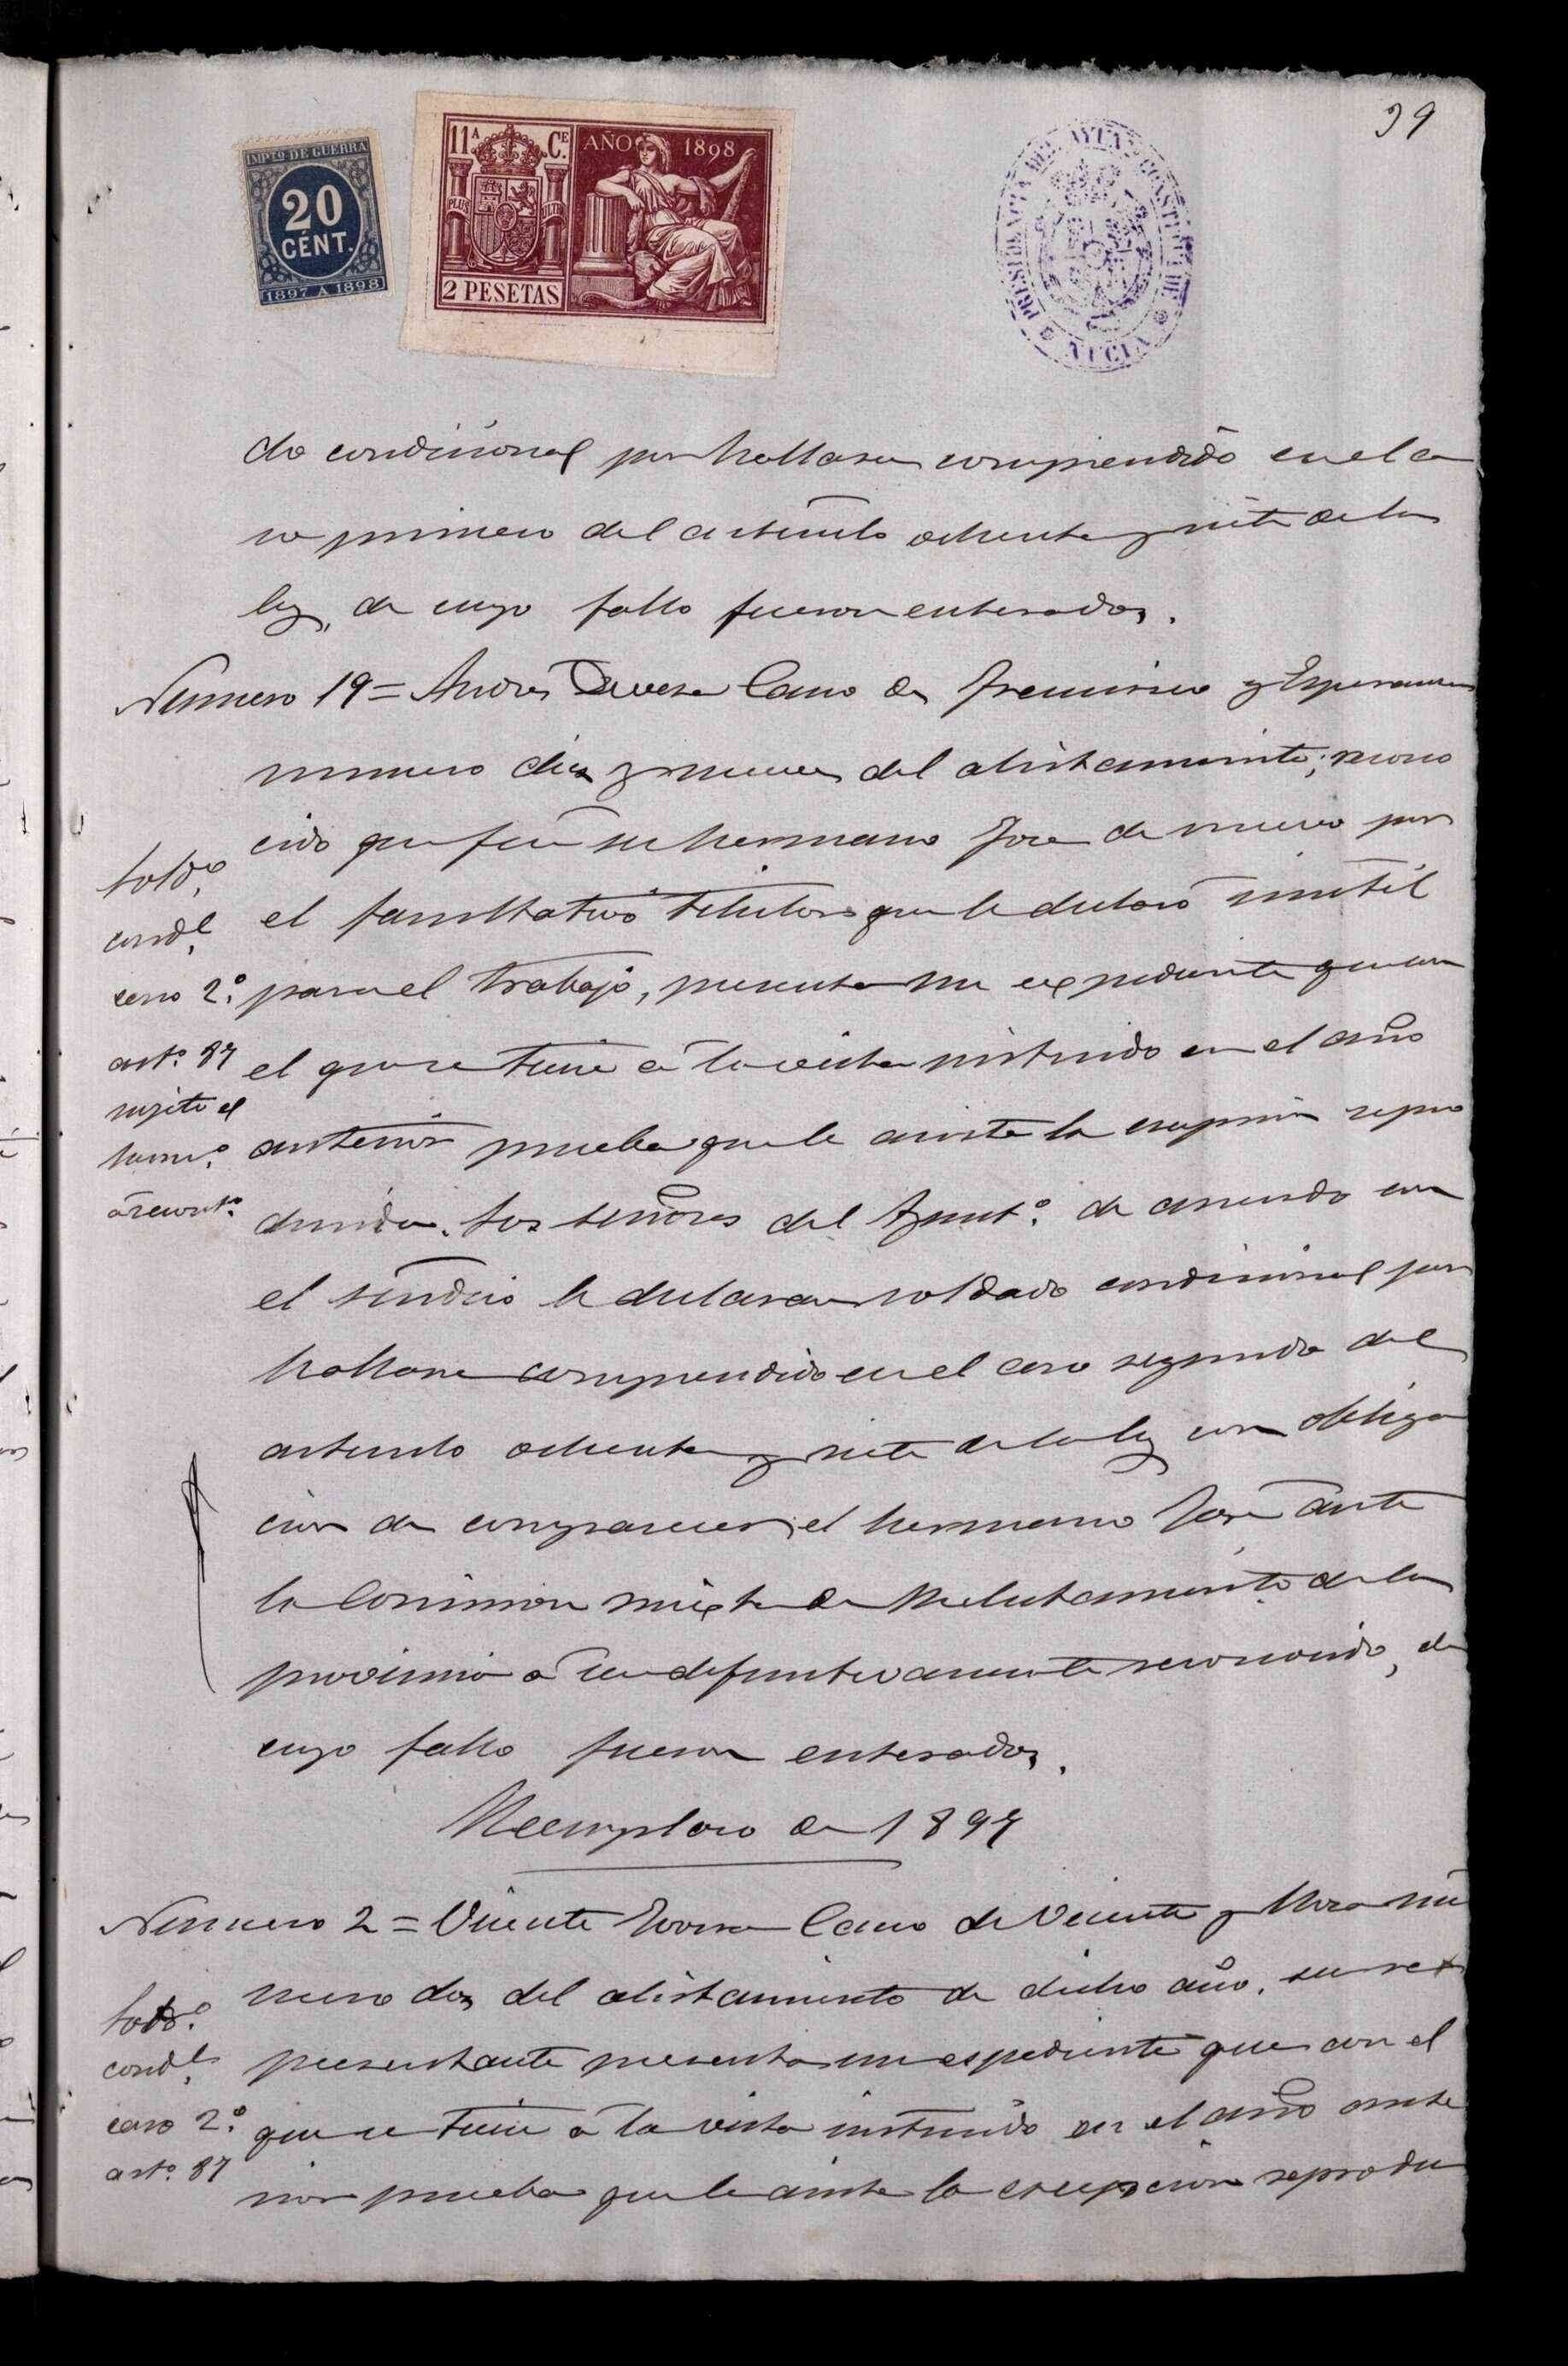 39
IMPTO DE GUERRA
20
CÉNT.
1897 A 1898
11A CE
AÑO 1898
PLUS ULTRA
2 PESETAS
PRESIDENCIA DEL AYTO CONSTITUCL DE
NUCIA
do condicional por hallarse comprendido en el ca
so primero del artículo ochenta y siete de la
ley, de cuyo fallo fueron enterados.
Número 19 = Andrés Devesa Cano de Francisco y Esperanza
número diez y nueve del alistamiento; recono
cido que fué su hermano José de nuevo por
el facultativo titular que le declaró inútil
para el trabajo, presenta un expediente que con
el que se tiene á la vista instruido en el año
anterior prueba que le asiste la excepción repro
ducida. Los señores del Ayunt.º de acuerdo con
el síndico le declaran soldado condicional por
hallarse comprendido en el caso segundo del
artículo ochenta y siete de la ley con obliga
ción de comparecer el hermano José ante
la Comision mixta de Reclutamiento de la
provincia á ser definitivamente reconocido, de
cuyo fallo fueron enterados.
Sold.º
cond.l
caso 2.º
art.º 87
sujeto el
herm.º
á recont.º
Reemplazo de 1897
Número 2 = Vicente Cano de Vicente y nú
mero dos del alistamiento de dicho año. su re
presentante presenta un espediente que con el
que se tiene á la vista instruido en el año ante
rior prueba que le asiste la excepcion reprodu
Sold.º
cond.l
caso 2.º
art.º 87